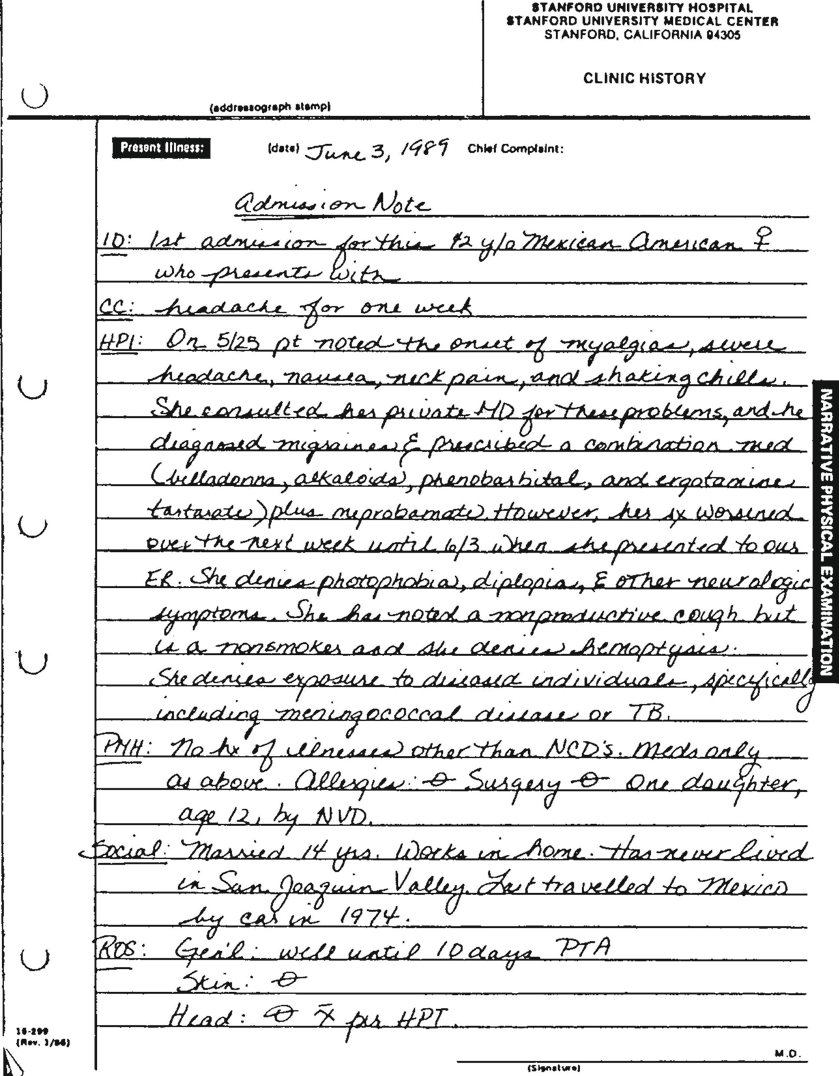 STANFORD UNIVERSITY HOSPITAL
STANFORD UNIVERSITY MEDICAL CENTER
STANFORD, CALIFORNIA 94305
CLINIC HISTORY
(addressograph stamp)
Present Illness: (date) June 3, 1989 Chief Complaint:
Admission Note
ID: 1st admission for this y/o Mexican American ♀
who presents with
CC: headache for one week
HPI: On 5/25 pt noted the onset of myalgias, severe
headache, nausea, neck pain, and shaking chills.
She consulted her private MD for these problems, and he
diagnosed migraines & prescribed a combination med
(belladonna, alkaloids, phenobarbital, and ergotamine
tartarate) plus meprobamate. However, her sx worsened
over the next week until 6/3 when she presented to our
ER. She denies photophobia, diplopia, & other neurologic
symptoms. She has noted a nonproductive cough but
is a nonsmoker and she denies hemoptysis.
She denies exposure to diseased individuals, specifically
including meningococcal disease or TB.
PMH: No hx of illnesses other than NCD's. Meds only
as above. Allergies: ⊖ Surgery ⊖ One daughter,
age 12, by NVD.
Social: Married 14 yrs. Works in home. Has never lived
in San Joaquin Valley. Last travelled to Mexico
by car in 1974.
ROS: Gen'l: well until 10 days PTA
Skin: ⊖
Head: ⊖ x̄ per HPI.
NARRATIVE PHYSICAL EXAMINATION
16-299
(Rev. 1/86)
M.D.
(Signature)